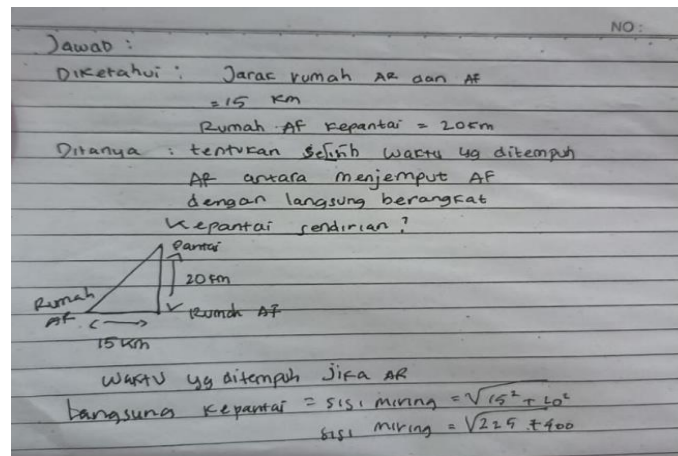 NO:
Jawab :
Diketahui : Jarak rumah AR dan AF
= 15 km
Rumah AF kepantai = 20 km
Ditanya : tentukan selisih waktu yg ditempuh
AR antara menjemput AF
dengan langsung berangkat
kepantai sendirian?
Pantai
20 km
Rumah
AF
Rumah AF
15 km
Waktu yg ditempuh jika AR
Langsung kepantai = sisi miring = √15² + 20²
sisi miring = √225 + 400